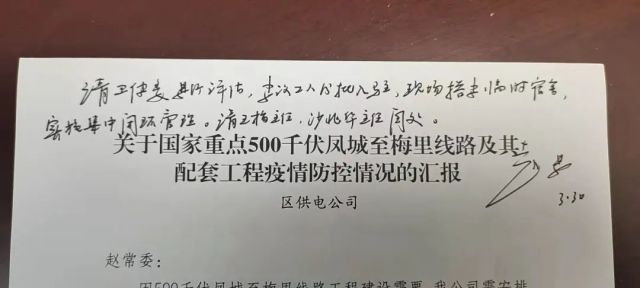 请卫健委进行评估，建议工人分批入驻，现场搭建临时宿舍，
实施集中闭环管理。请王指主任，沙班主任阅处。
关于国家重点500千伏凤城至梅里线路及其
配套工程疫情防控情况的汇报
3.30
区供电公司
赵常委：
因500千伏凤城至梅里线路工程建设需要，我公司需安排